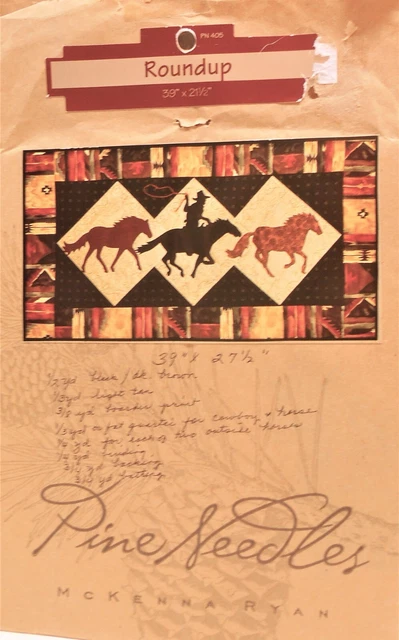 PN 405
Roundup
39" x 21½"
39" x 27½"
½ yd black / dk. brown
⅓ yd light tan
yd boarder print
⅓ yd or fat quarter for cowboy & horse
¼ yd for each of two outside horses
¼ yd binding
¾ yd backing
¾ yd batting
Pine Needles
McKenna Ryan